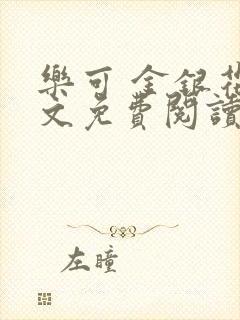 樂可 金銀花
文免費閱讀
左瞳